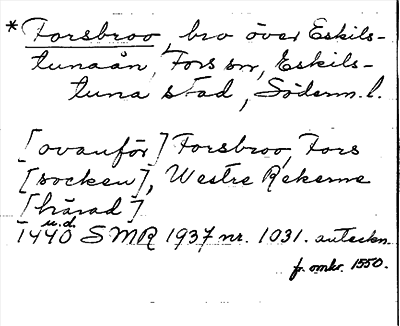 *Forsbroo, bro över Eskils-
tunaån, Fors sn, Eskils-
tuna stad, Söderm. l.
[ovanför] Forsbroo, Fors
[socken], Westre Rekerne
[härad]
u.d.
1440 SMR 1937 nr. 1031. anteckn.
fr. omkr. 1550.